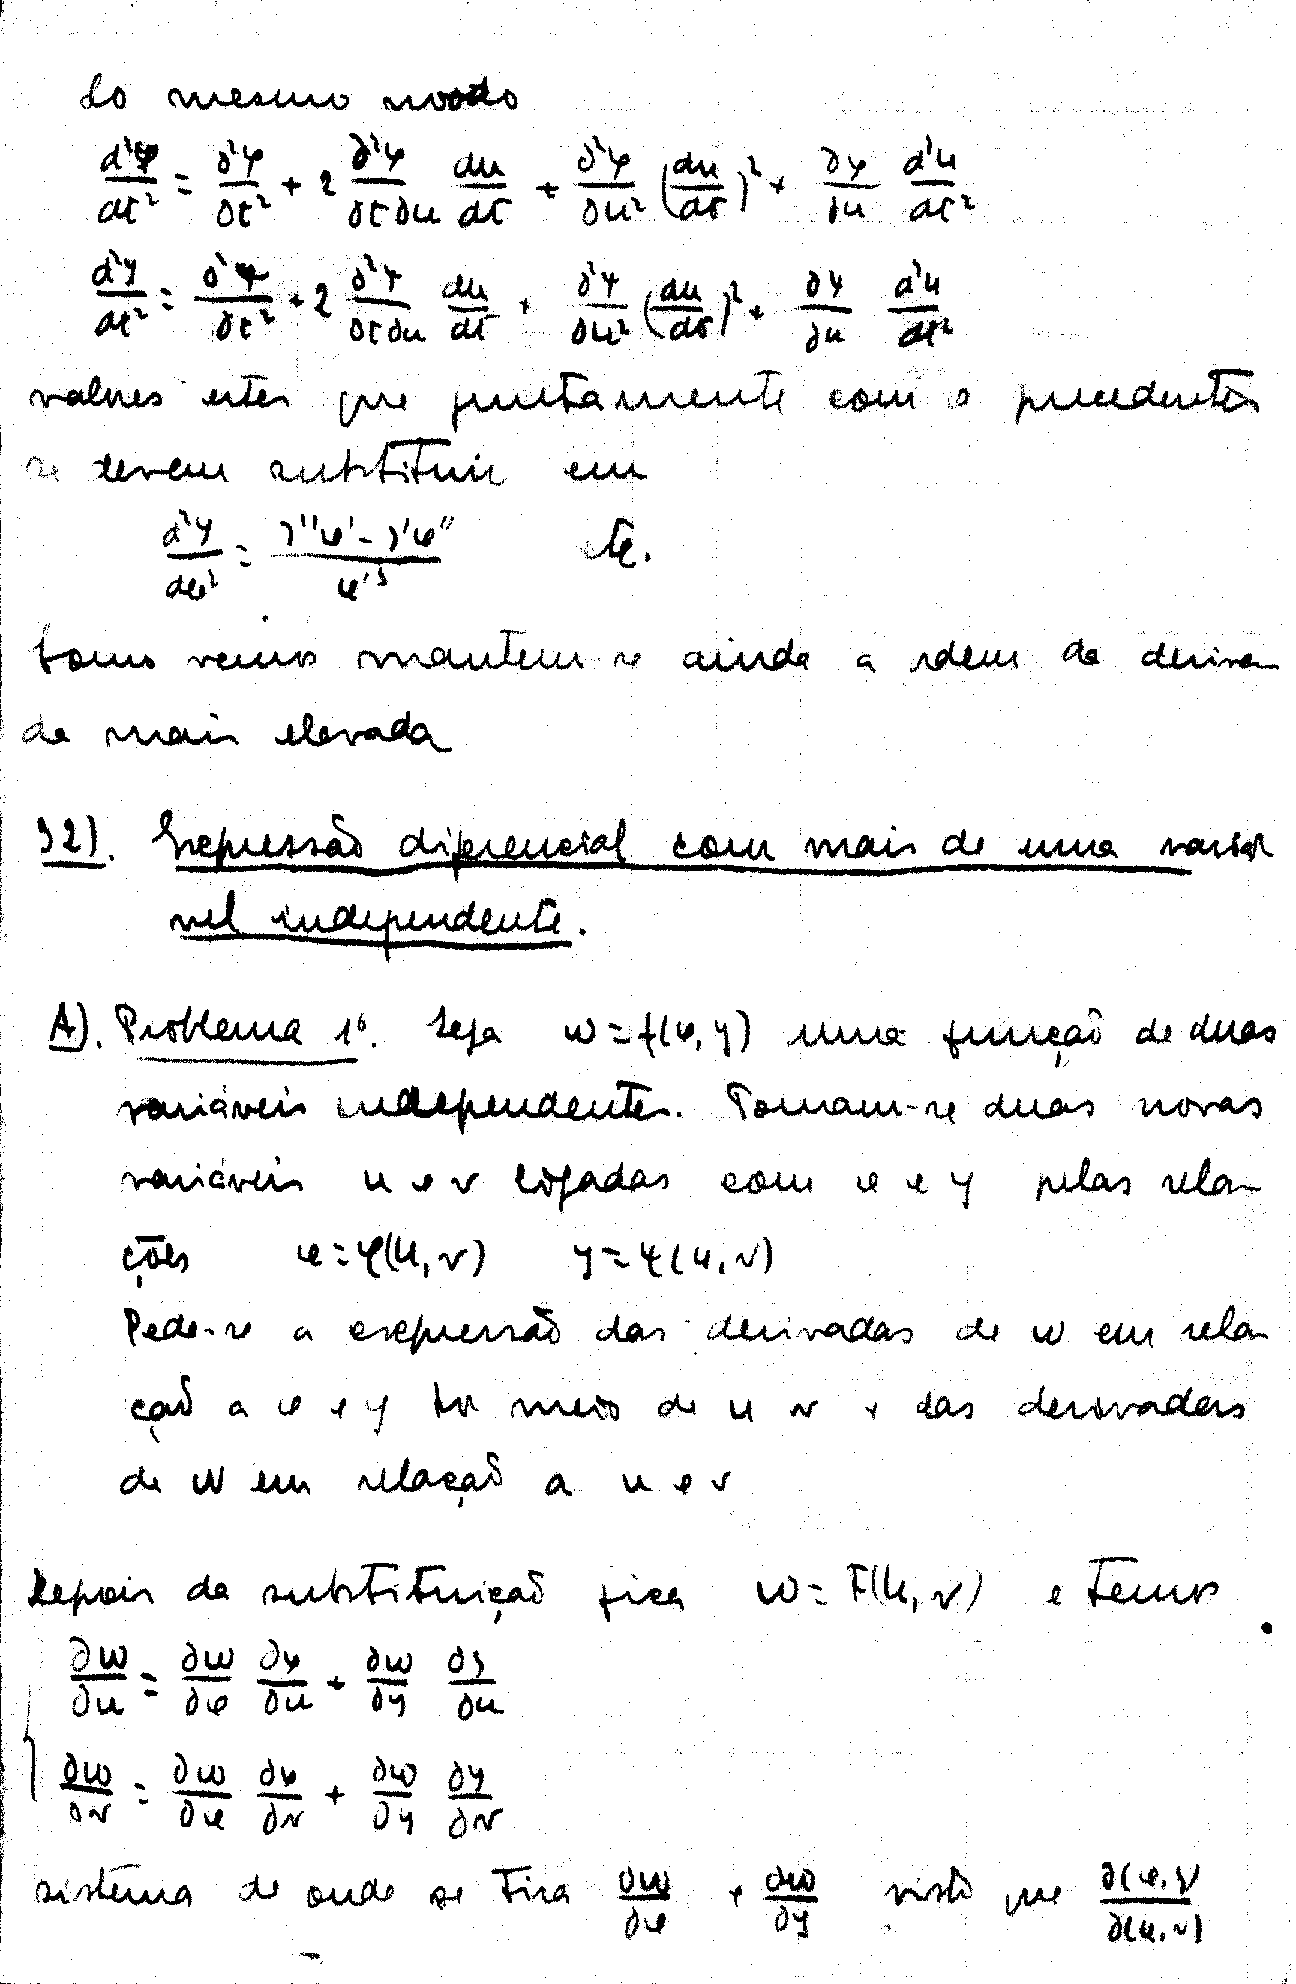 do mesmo modo
d²x/dt² = ∂²φ/∂t² + 2 ∂²φ/∂t∂u du/dt + ∂²φ/∂u² (du/dt)² + ∂φ/∂u d²u/dt²
d²y/dt² = ∂²ψ/∂t² + 2 ∂²ψ/∂t∂u du/dt + ∂²ψ/∂u² (du/dt)² + ∂ψ/∂u d²u/dt²
valores estes que juntamente com o precedentes
se devem substituir em
d²y/dx² = y''x' - y'x''/x'³ etc.
Como vemos mantem-se ainda a ordem da deriva
da mais elevada
32). Expressão diferencial com mais de uma variá
vel independente.
A). Problema 1º. Seja w = f(x, y) uma função de duas
variáveis independentes. Tomam-se duas novas
variáveis u e v ligadas com x e y pelas rela-
ções x = φ(u, v) y = ψ(u, v)
Pede-se a expressão das derivadas de w em rela-
ção a x e y por meio de u v e das derivadas
de w em relação a u e v
Depois da substituição fica w = F(u, v) e temos
∂w/∂u = ∂w/∂x ∂x/∂u + ∂w/∂y ∂y/∂u
∂w/∂v = ∂w/∂x ∂x/∂v + ∂w/∂y ∂y/∂v
sistema de onde se tira ∂w/∂x e ∂w/∂y visto que ∂(x, y)/∂(u, v)